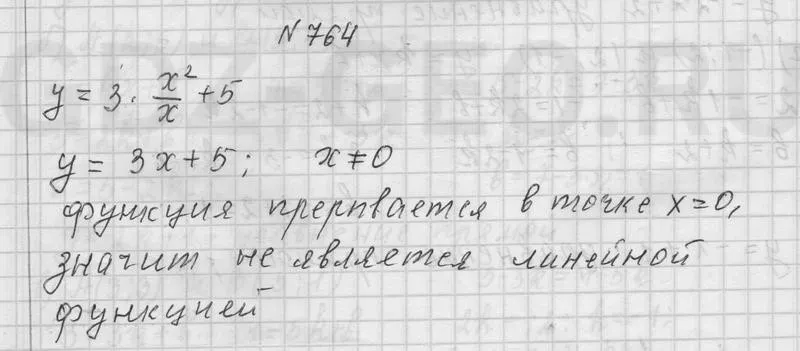 N 764
y = 3 · x²/x + 5
y = 3x + 5; x ≠ 0
функция прерывается в точке x = 0,
значит не является линейной
функцией